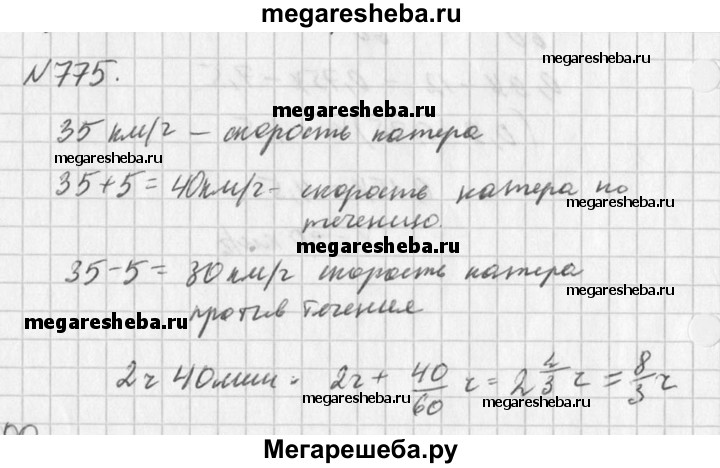 megaresheba.ru
N775.
megaresheba.ru
megaresheba.ru
35 км/г – скорость катера
megaresheba.ru
35+5=40км/г- скорость катера по
megaresheba.ru
течению.
megaresheba.ru
35-5=30км/г скорость катера
megaresheba.ru
против течения
megaresheba.ru
2ч 40мин = 2ч + 40/60 ч = 2 2/3 ч = 8/3 ч
megaresheba.ru
megaresheba.ru
Мегарешеба.ру